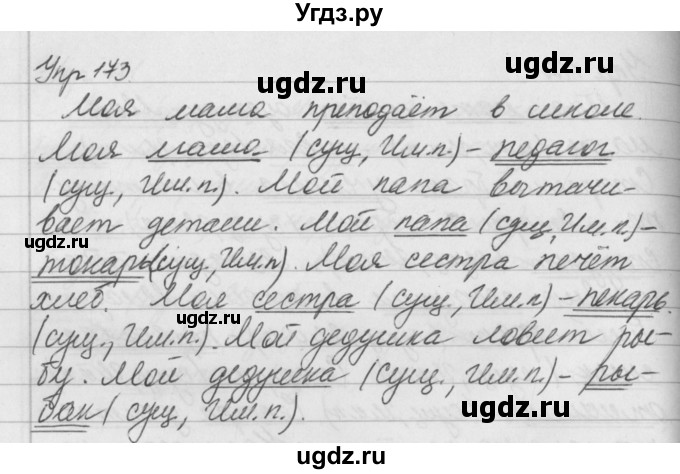 Угдз.ру
Упр 173
Моя мама преподаёт в школе.
Моя мама (сущ, Им.п.) - педагог
(сущ., Им.п.). Мой папа вытачи-
вает детали. Мой папа (сущ, Им.п.) -
токарь (сущ, Им.п.). Моя сестра печёт
хлеб. Моя сестра (сущ, Им.п) - пекарь.
(сущ., Им.п.). Мой дедушка ловит ры-
бу. Мой дедушка (сущ., Им.п.) - ры-
бак (сущ, Им.п.).
ugdz.ru
ugdz.ru
ugdz.ru
ugdz.ru
ugdz.ru
ugdz.ru
ugdz.ru
ugdz.ru
Угдз.ру